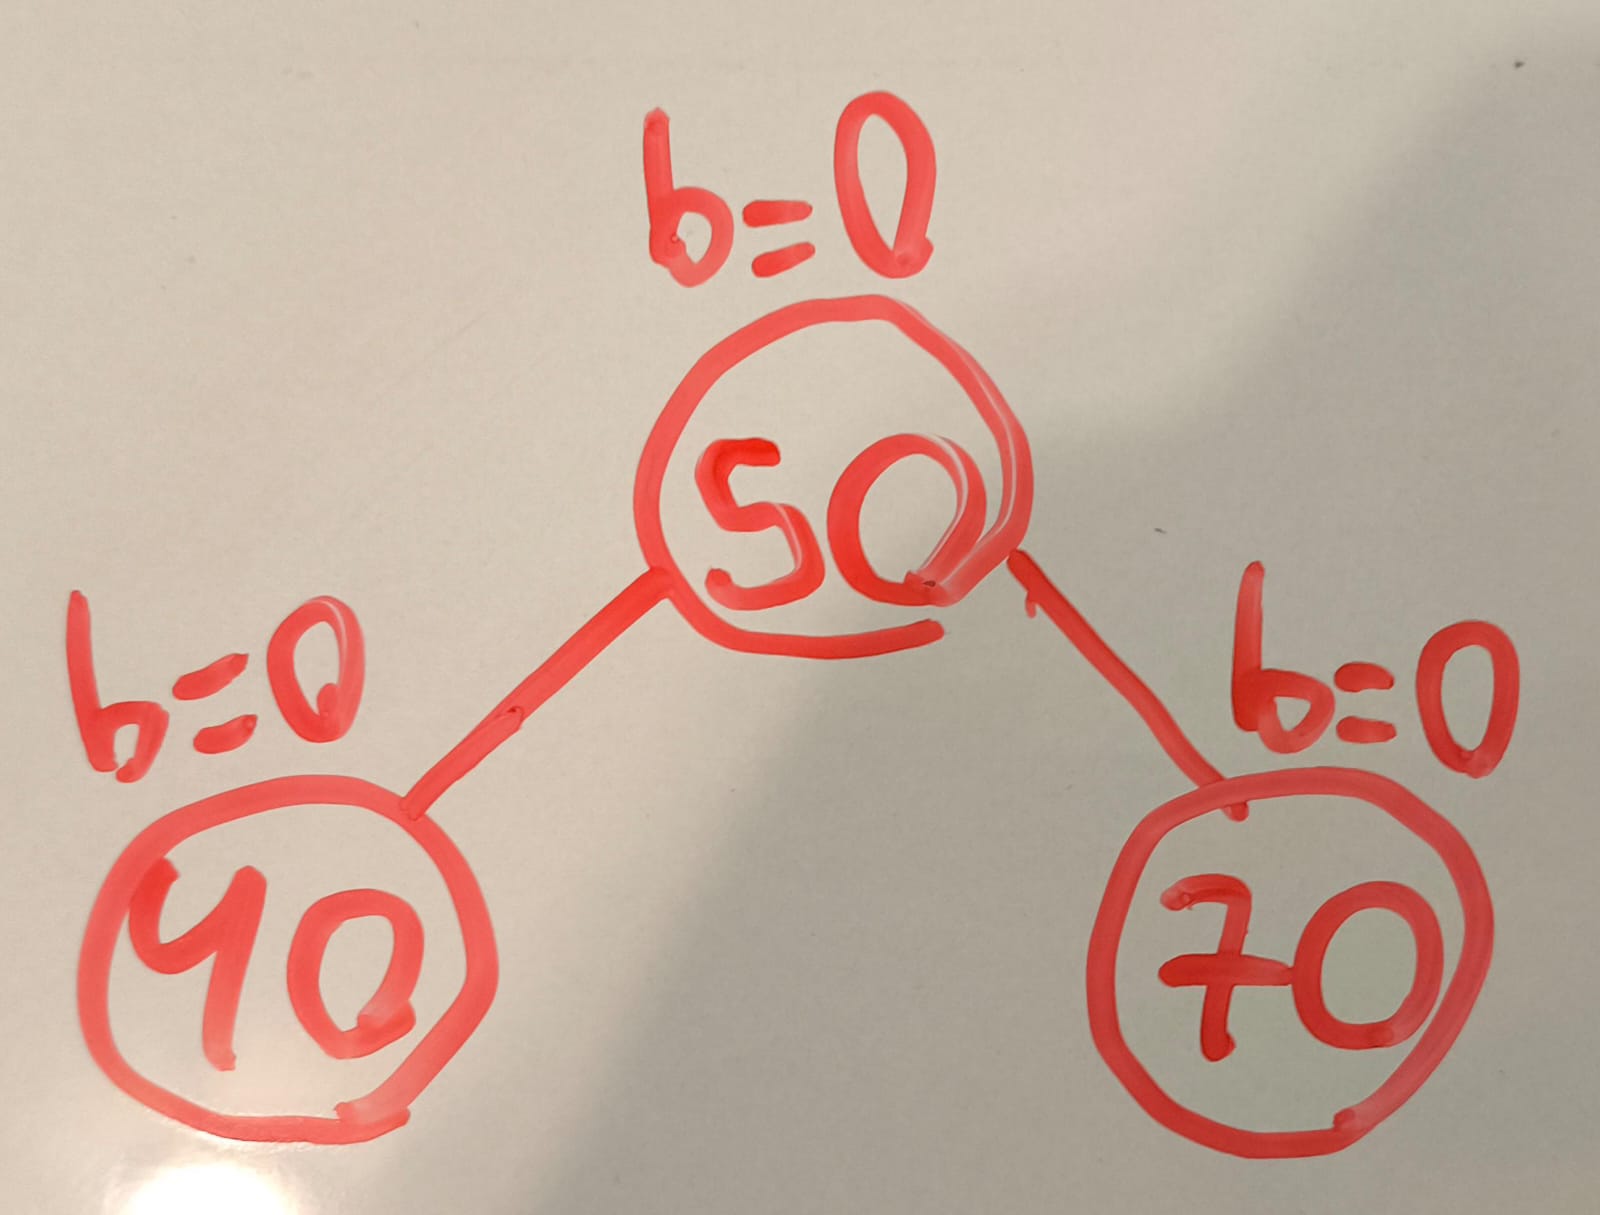 b=0
50
b=0 b=0
40 70